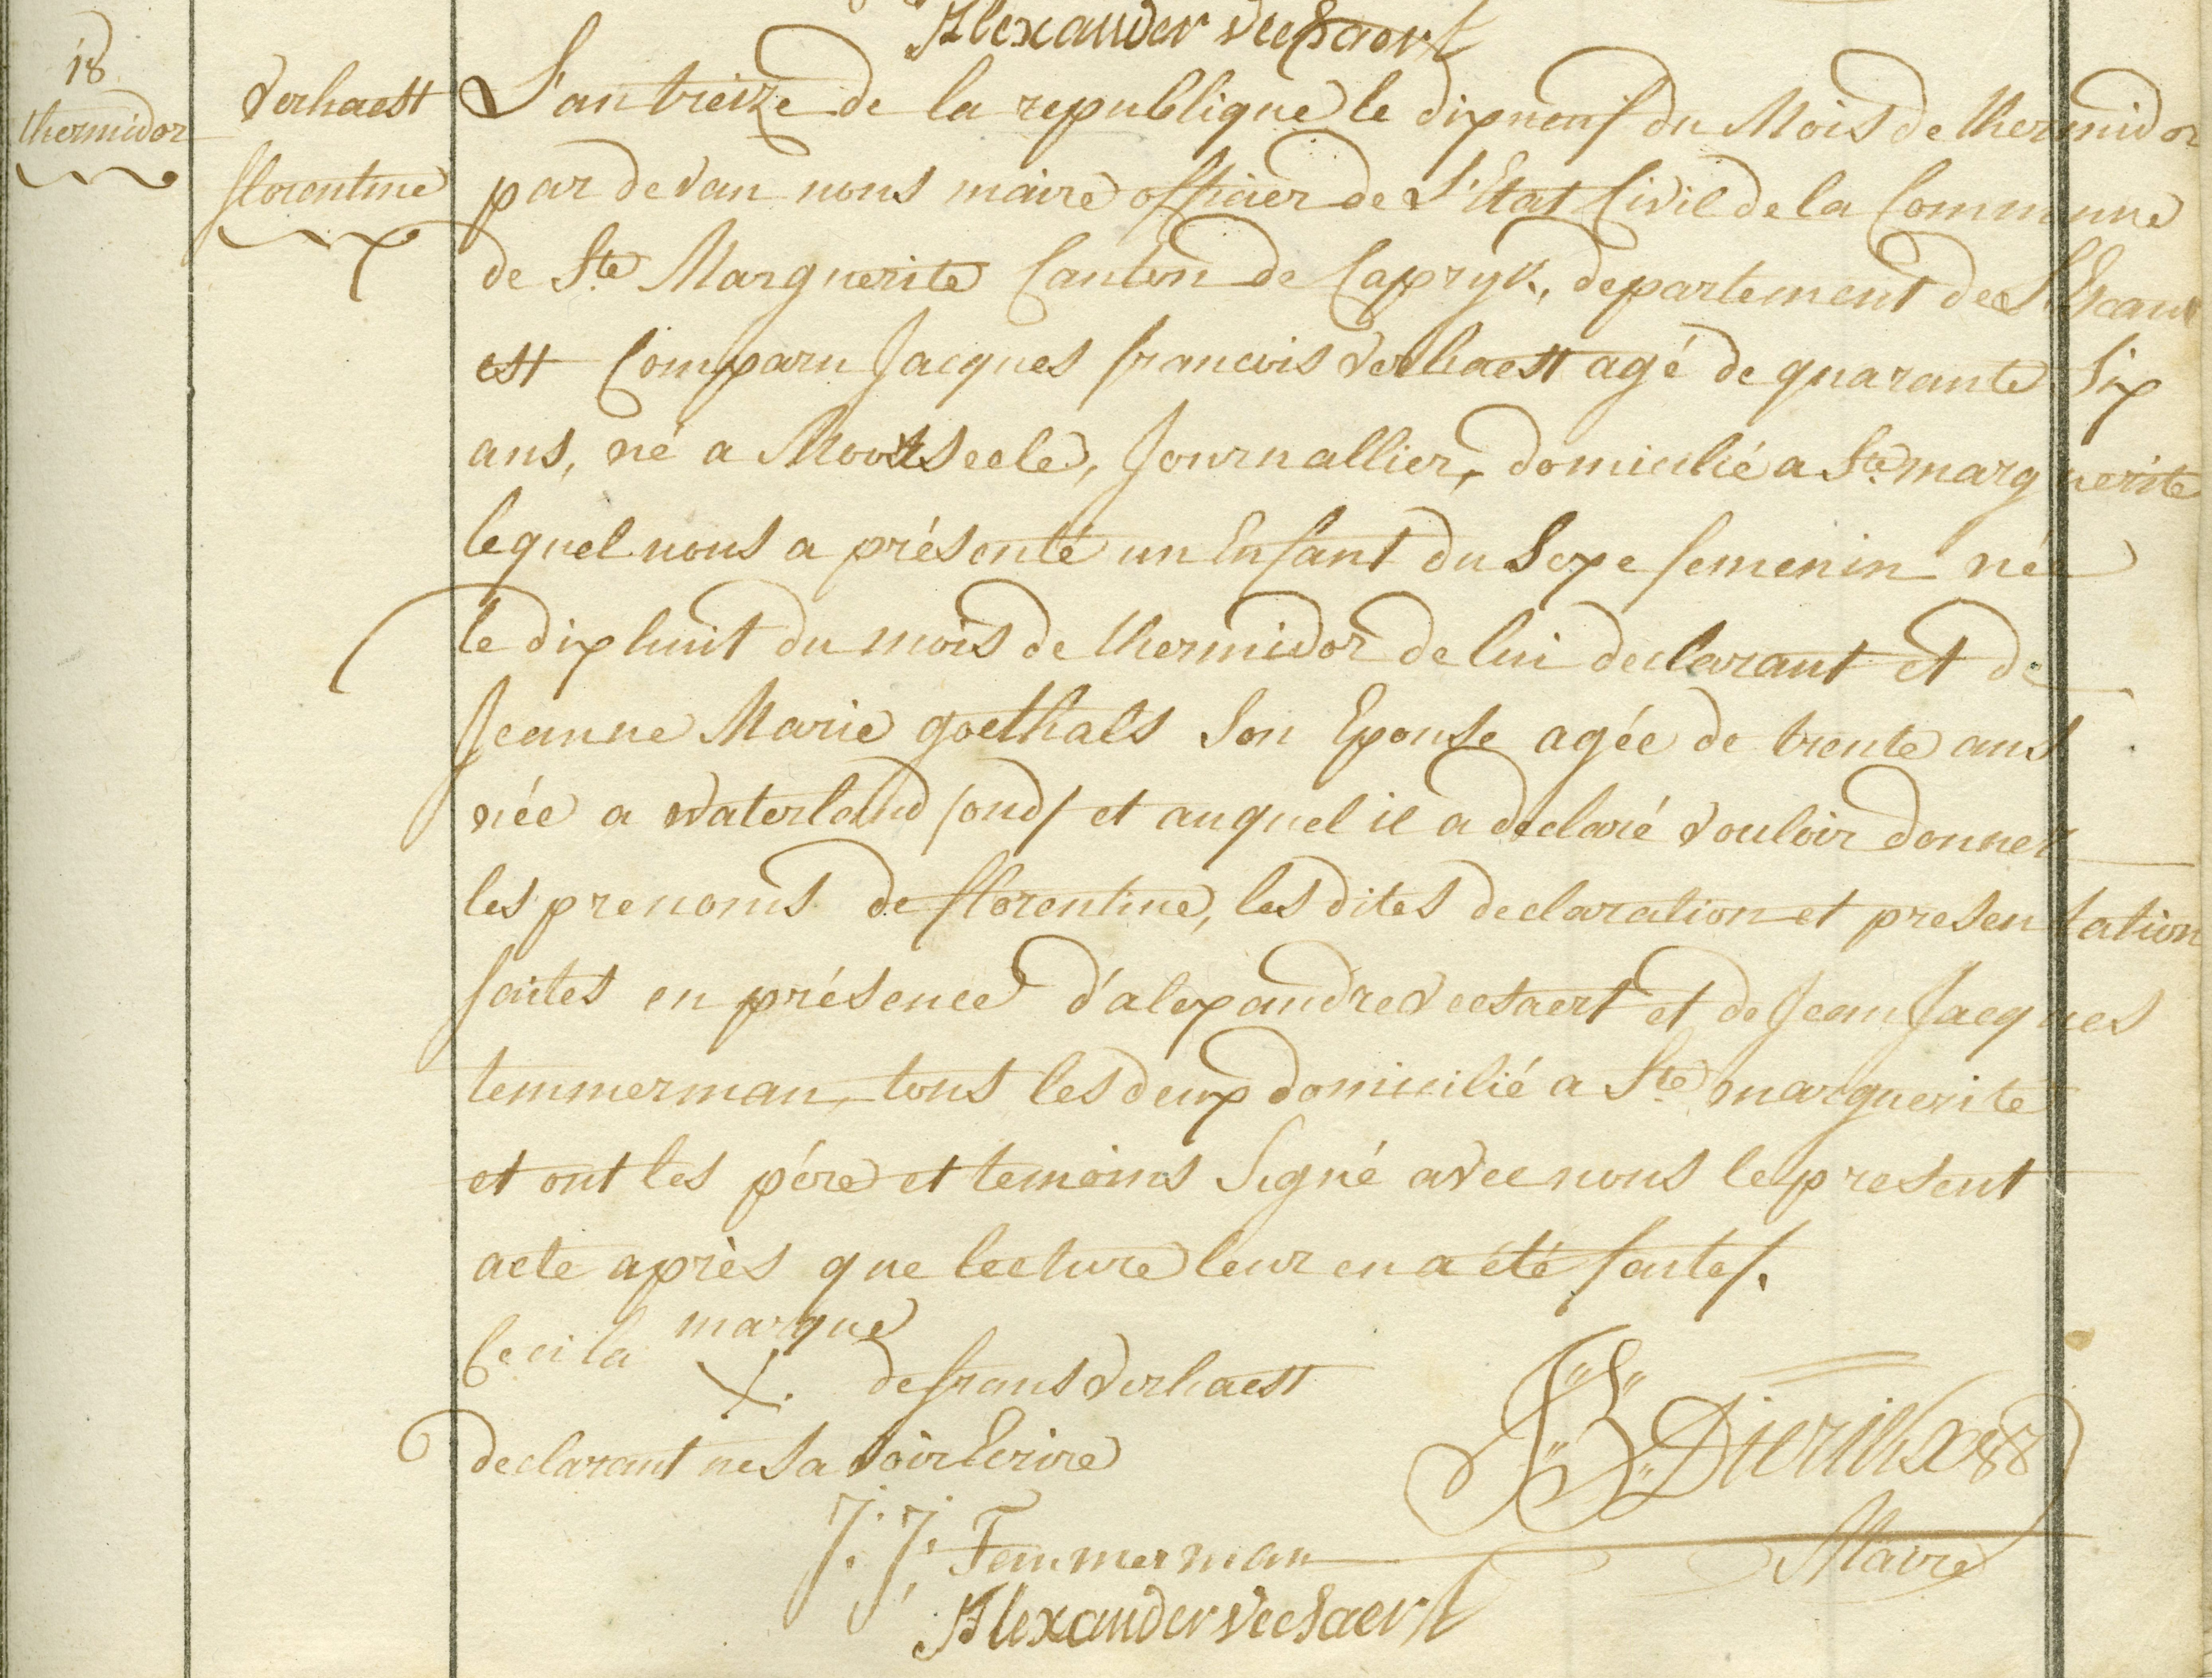 Alexander Veesaert
18
thermidor
Verhaest
florentine
L'an treize de la republique le dixneuf du Mois de thermidor
par devan nous maire officier de L'Etat Civil de la Commune
de Ste Marguerite Canton de Capryk, departement de L'Escaut
est Comparu Jacques francois Verhaest agé de quarante Six
ans, né a Moorseele, Journallier, domicilié a Ste marguerite
lequel nous a présenté un Enfant du Sexe femenin née
le dix huit du mois de thermidor de lui declarant et de
Jeanne Marie goethals Son Epouse agée de trente ans
née a waterland /oud/ et auquel il a declaré vouloir donner
les prenoms de florentine, les dites declaration et presentation
faites en présence d'alexandre Veesaert et de Jean Jacques
temmerman, tous les deux domicilié a Ste marguerite
et ont les pére et temoins Signé avec nous le present
acte après que lecture leur en a été faite/.
Ceci la marque
X. de frans Verhaest
declarant ne Savoir Ecrire
J: J: Temmerman
Maire
Alexander Veesaert